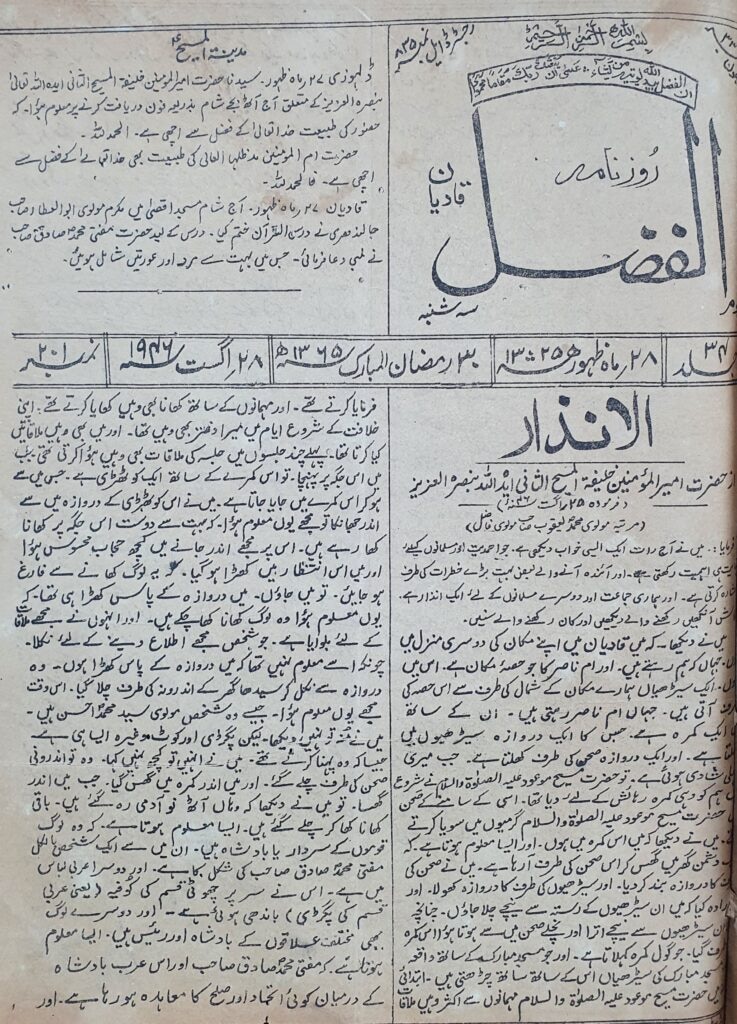 بسم اللہ الرحمن الرحیم
رجسٹرڈ ایل نمبر ۸۳۵
ان الفضل بید اللہ یوتیہ من یشاء عسیٰ ان یبعثک ربک مقاما محمودا
روزنامہ
الفضل
قادیان
سہ شنبہ
مدینۃ المسیح
ڈلہوزی ۲۷ ماہ ظہور۔ سیدنا حضرت امیر المومنین خلیفۃ المسیح الثانی ایدہ اللہ تعالیٰ
بنصرہ العزیز کے متعلق آج آٹھ بجے شام بذریعہ فون دریافت کرنے پر معلوم ہؤا۔ کہ
حضور کی طبیعت خدا تعالیٰ کے فضل سے اچھی ہے۔ الحمد للہ۔
حضرت ام المومنین مدظلہا العالی کی طبیعت بھی خدا تعالیٰ کے فضل سے
اچھی ہے۔ فالحمد للہ۔
قادیان ۲۷ ماہ ظہور۔ آج شام مسجد اقصیٰ میں مکرم مولوی ابو العطاء صاحب
جالندھری نے درس القرآن ختم کیا۔ درس کے بعد حضرت مفتی محمد صادق صاحب
نے لمبی دعا فرمائی۔ جس میں بہت سے مرد اور عورتیں شامل ہوئیں۔
جلد ۳۴
۲۸ ماہ ظہور ۱۳۲۵ ھ
۳۰ رمضان المبارک ۱۳۶۵ھ
۲۸ اگست ۱۹۴۶ء
نمبر ۲۰۱
الانذار
از حضرت امیر المؤمنین خلیفۃ المسیح الثانی ایدہ اللہ بنصرہ العزیز
(فرمودہ ۲۵ اگست ۴۶ء)
(مرتبہ مولوی محمد یعقوب صاحب مولوی فاضل)
فرمایا:۔ میں نے آج رات ایک ایسی خواب دیکھی ہے۔ جو احمدیت اور مسلمانوں کیلئے
بہت بڑی اہمیت رکھتی ہے۔ اور آئندہ آنے والے بعض بہت بڑے خطرات کی طرف
اشارہ کرتی ہے۔ اور ہماری جماعت اور دوسرے مسلمانوں کے لئے ایک انذار ہے۔
کاش آنکھیں رکھنے والے دیکھیں اور کان رکھنے والے سنیں۔
میں نے دیکھا۔ کہ میں قادیان میں اپنے مکان کی دوسری منزل میں
جہاں کہ ہم رہتے ہیں۔ اور ام ناصر کا جو حصۂ مکان ہے۔ اس میں
ایک سیڑھیاں ہمارے مکان کے شمال کی طرف سے اس حصہ کی
طرف آتی ہیں۔ جہاں ام ناصر رہتی ہیں۔ ان کے ساتھ
ایک کمرہ ہے۔ جس کا ایک دروازہ سیڑھیوں میں
کھلتا ہے۔ اور ایک دروازہ صحن کی طرف کھلتا ہے۔ جب میری
شادی ہوئی ہے۔ تو حضرت مسیح موعود علیہ الصلوٰۃ والسلام نے شروع
میں ہم کو وہی کمرہ رہائش کے لئے دیا تھا۔ اسی کے سامنے کے صحن
حضرت مسیح موعود علیہ الصلوٰۃ والسلام گرمیوں میں سویا کرتے
میں نے دیکھا کہ میں اس کمرہ میں ہوں۔ اور ایسا معلوم ہوتا ہے۔ کہ
دشمن گھر میں گھس کر اس صحن کی طرف آرہا ہے۔ میں نے صحن کی
طرف کا دروازہ بند کردیا۔ اور سیڑھیوں کی طرف کا دروازہ کھولا۔ اور
ارادہ کیا کہ میں ان سیڑھیوں کے رستہ سے نیچے چلا جاؤں۔ چنانچہ
ان سیڑھیوں سے نیچے اترا اور نچلے صحن میں سے ہوتا ہؤا اس کمرہ
طرف گیا۔ جو گول کمرہ کہلاتا ہے۔ اور جو مسجد مبارک کے ساتھ واقع
مسجد مبارک کی سیڑھیاں اس کے ساتھ ساتھ چڑھتی ہیں۔ ابتدائی
ایام میں حضرت مسیح موعود علیہ الصلوٰۃ والسلام مہمانوں سے اکثر وہیں ملاقات
فرمایا کرتے تھے۔ اور مہمانوں کے ساتھ کھانا بھی وہیں کھایا کرتے تھے۔ اپنی
خلافت کے شروع ایام میں میرا دفتر بھی وہیں تھا۔ اور میں بھی وہیں ملاقاتیں
کیا کرتا تھا۔ پہلے چند جلسوں میں جلسہ کی ملاقات بھی وہیں ہؤا کرتی تھی جب
میں اس جگہ پر پہنچا۔ تو اس کمرے کے ساتھ ایک کوٹھڑی ہے۔ جس میں سے
ہوکر اس کمرے میں جایا جاتا ہے۔ میں نے اس کوٹھڑی کے دروازہ میں سے
اندر جھانکا تو مجھے یوں معلوم ہؤا۔ کہ بہت سے دوست اس جگہ پر کھانا
کھا رہے ہیں۔ اس پر مجھے اندر جانے میں کچھ حجاب محسوس ہؤا
اور میں اس انتظار میں کھڑا ہوگیا۔ کہ یہ لوگ کھانے سے فارغ
ہو جائیں۔ تو میں جاؤں۔ میں دروازہ کے پاس کھڑا ہی تھا۔ کہ
یوں معلوم ہؤا وہ لوگ کھانا کھا چکے ہیں۔ اور انہوں نے مجھے ملاقات
کے لئے بلوایا ہے۔ جو شخص مجھے اطلاع دینے کے لئے نکلا۔
چونکہ اسے معلوم نہیں تھا کہ میں دروازہ کے پاس کھڑا ہوں۔ وہ
دروازہ سے نکل کر سیدھا گھر کے اندرونہ کی طرف چلا گیا۔ اس وقت
مجھے یوں معلوم ہؤا۔ جیسے وہ شخص مولوی سید محمد احسن ہیں۔
میں نے منہ تو نہیں دیکھا۔ لیکن پگڑی اور کوٹ وغیرہ ایسا ہی ہے
جیسا کہ وہ پہنا کرتے تھے۔ میں نے انہیں تو کچھ نہیں کہا۔ وہ تو اندرونی
صحن کی طرف چلے گئے۔ اور میں اندر کمرہ میں گھس گیا۔ جب میں اندر
گھسا۔ تو میں نے دیکھا کہ وہاں آٹھ نو آدمی رہ گئے ہیں۔ باقی
کھانا کھا کر چلے گئے ہیں۔ ایسا معلوم ہوتا ہے۔ کہ وہ لوگ
قوموں کے سردار یا بادشاہ ہیں۔ ان میں سے ایک شخص بالکل
مفتی محمد صادق صاحب کی شکل کا ہے۔ اور دوسرا عربی لباس
میں ہے۔ اس نے سر پر چھوٹی قسم کی کوفیہ (یعنی عربی
قسم کی پگڑی) باندھی ہوئی ہے۔ اور دوسرے لوگ
بھی مختلف علاقوں کے بادشاہ اور رئیس ہیں۔ ایسا معلوم
ہوتا ہے۔ کہ مفتی محمد صادق صاحب اور اس عرب بادشاہ
کے درمیان کوئی اتحاد اور صلح کا معاہدہ ہو رہا ہے۔ اور